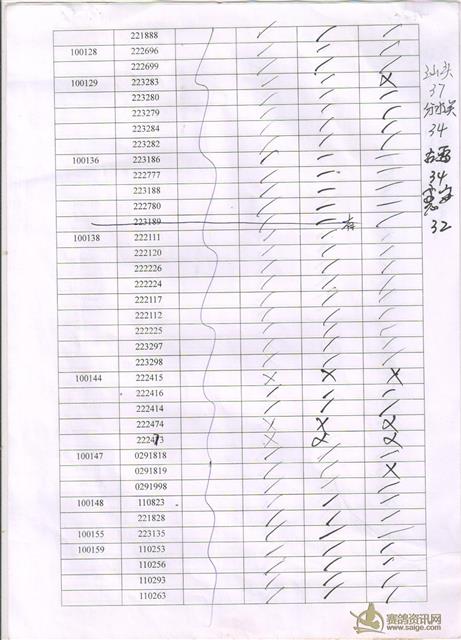 221888
100128 222696
222699
100129 223283 X
223280
223279
223284
223282
100136 223186
222777
223188
222780
223189
100138 222111
222120
222226
222224
222117
222112
222225
223297
223298
100144 222415 X X X
222416
222414
222474 X X X
X X X
100147 0291818
0291819 X
0291998
100148 110823
221828
100155 223135
100159 110253
110256
110293
110263
汕头
37
分水关
34
34
惠安
32
赛鸽资讯网
www.saige.com